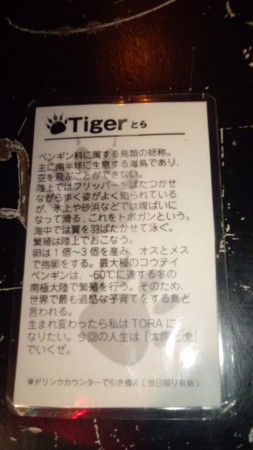 Tiger とら
ペンギン科に属する鳥類の総称。
主に南半球に生息する海鳥であり、
空を飛ぶことができない。
陸上ではフリッパーをばたつかせ
ながら歩く姿がよく知られている
が、氷上や砂浜などでは腹ばいに
なって滑る。これをトボガンという。
海中では翼を羽ばたかせて泳ぐ。
繁殖は陸上でおこなう。
卵は1個~3個を産み、オスとメス
で抱卵をする。最大種のコウテイ
ペンギンは、-60℃に達する冬の
南極大陸で繁殖を行う。そのため、
世界で最も過酷な子育てをする鳥と
言われる。
生まれ変わったら私はTORAに
なりたい。今回の人生は「太陽と
でいくぜ。
※ドリンクカウンターで引き換え(当日限り有効)